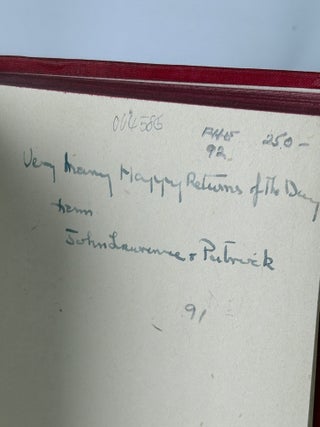 004585
250-
92
Very Many Happy Returns of the Day
from
John Lawrence & Patrick
91